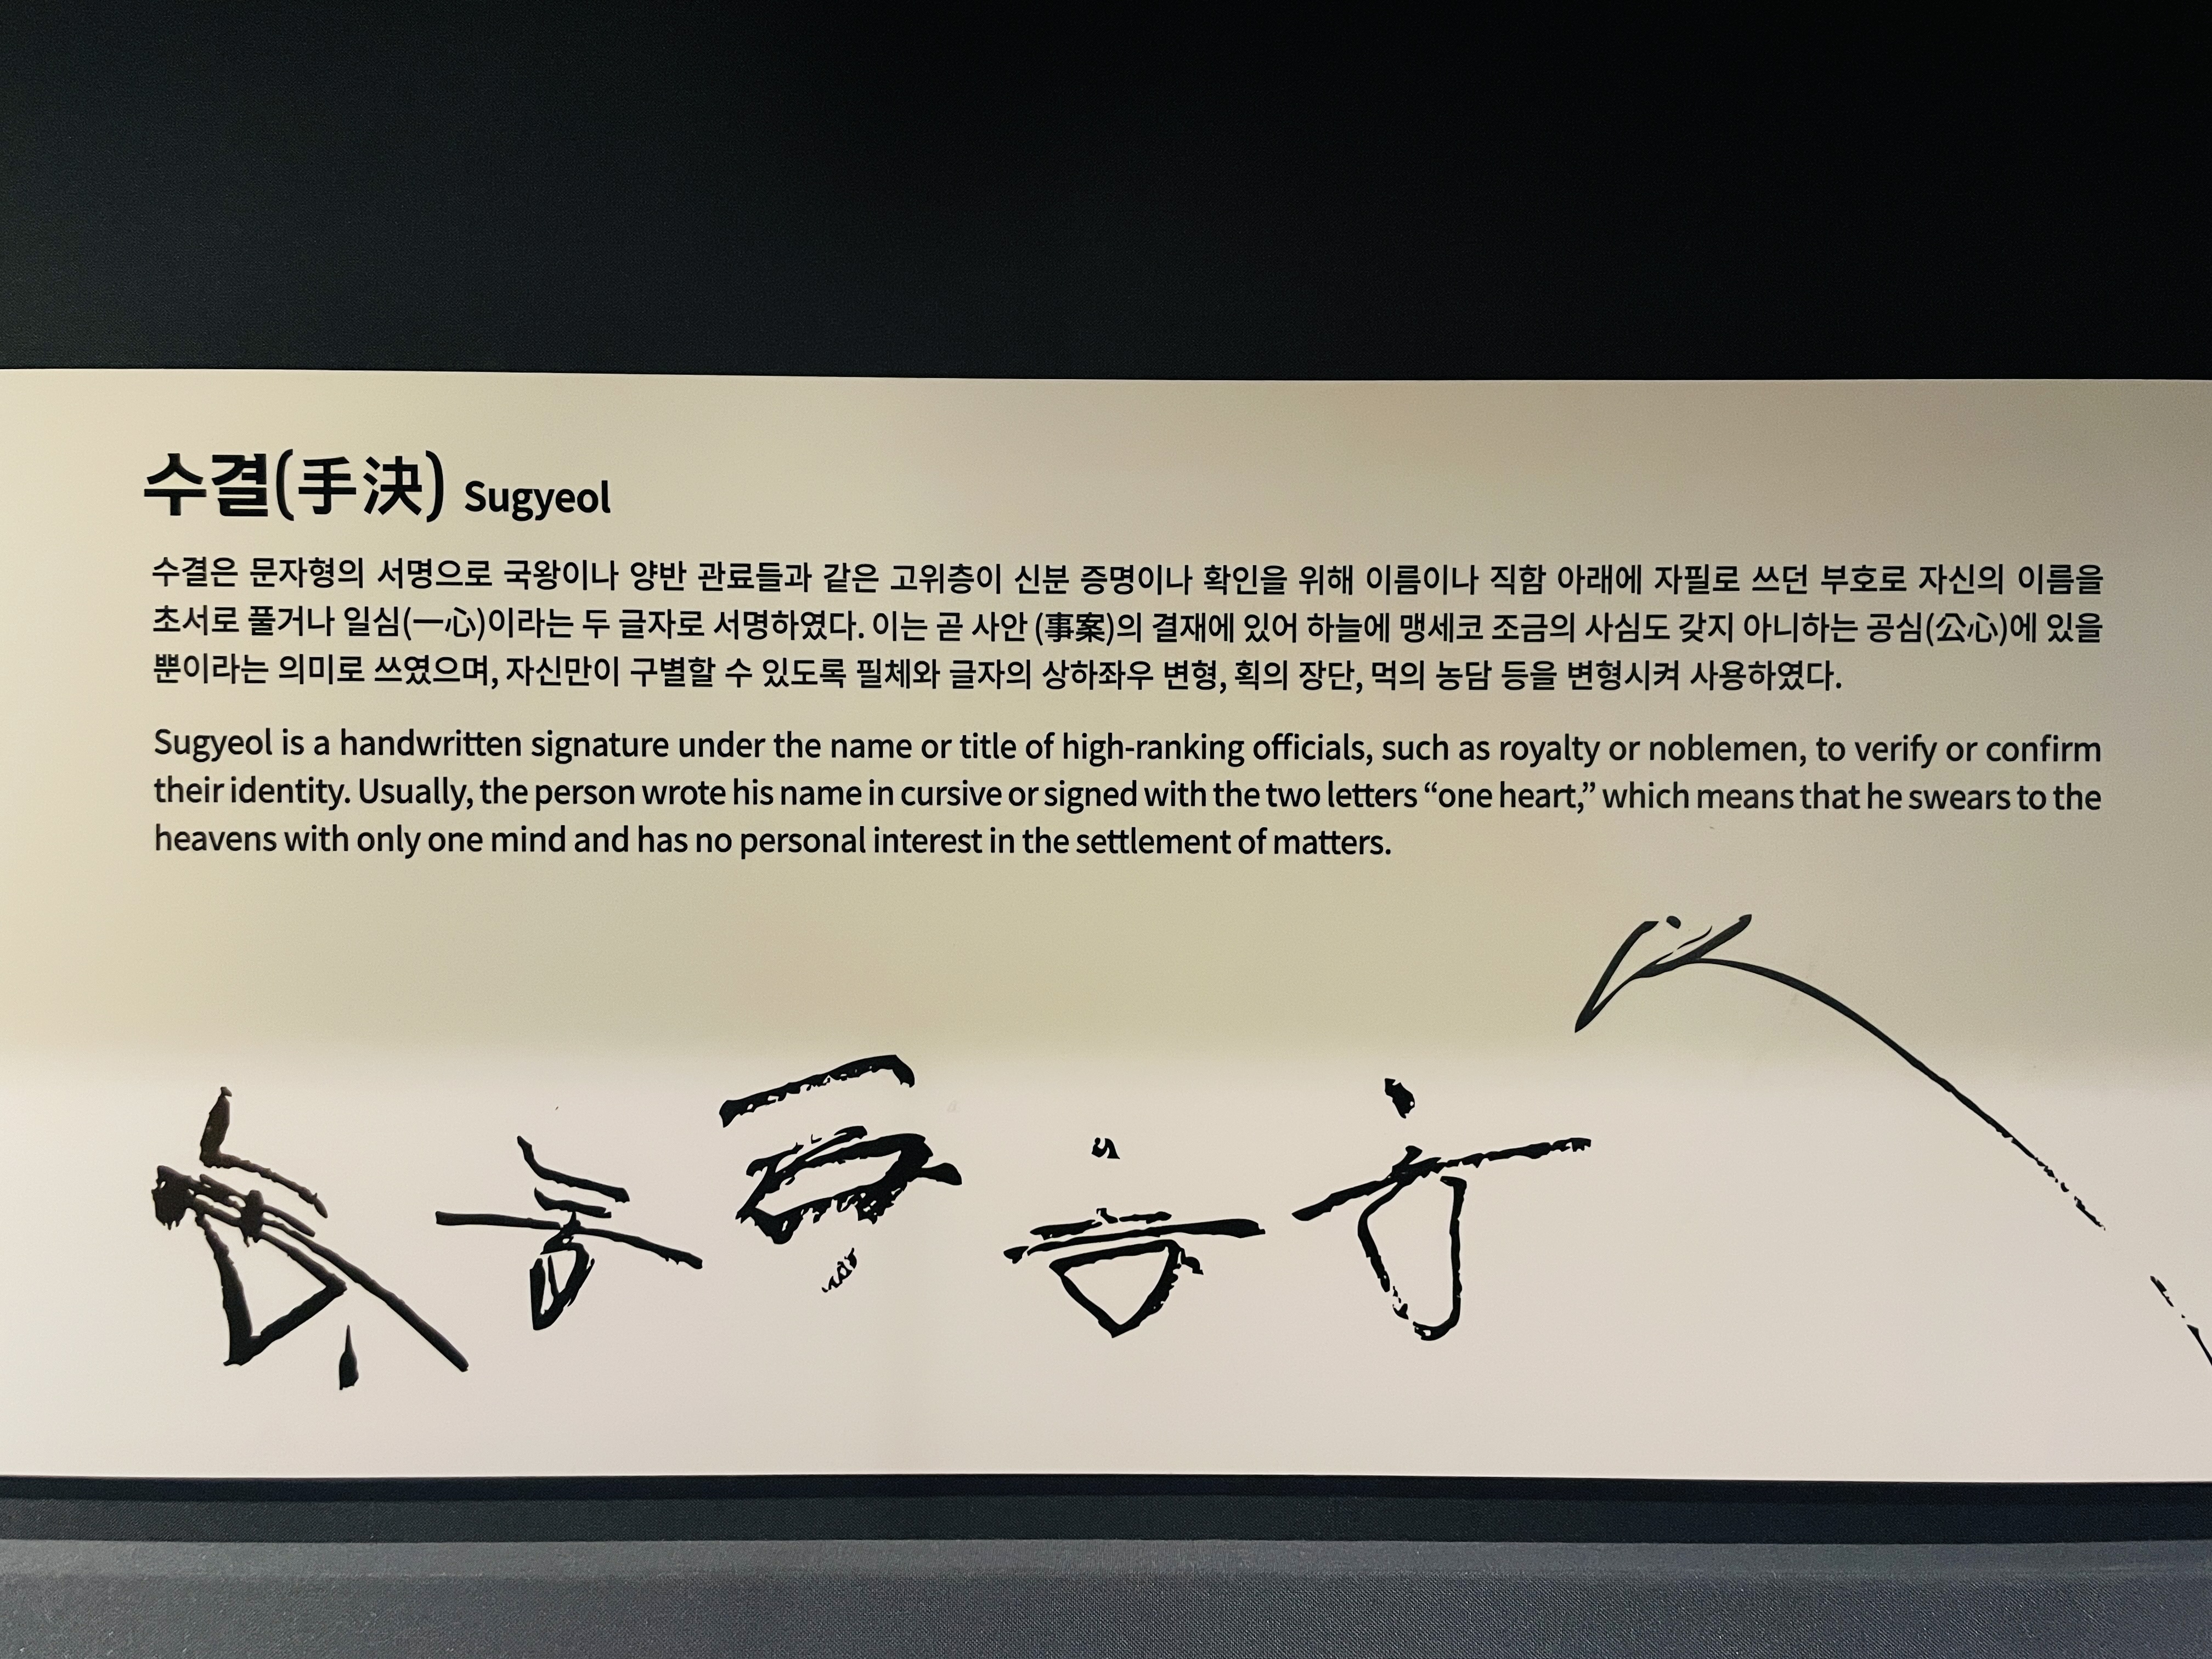 수결(手決) Sugyeol
수결은 문자형의 서명으로 국왕이나 양반 관료들과 같은 고위층이 신분 증명이나 확인을 위해 이름이나 직함 아래에 자필로 쓰던 부호로 자신의 이름을
초서로 풀거나 일심(一心)이라는 두 글자로 서명하였다. 이는 곧 사안 (事案)의 결재에 있어 하늘에 맹세코 조금의 사심도 갖지 아니하는 공심(公心)에 있을
뿐이라는 의미로 쓰였으며, 자신만이 구별할 수 있도록 필체와 글자의 상하좌우 변형, 획의 장단, 먹의 농담 등을 변형시켜 사용하였다.
Sugyeol is a handwritten signature under the name or title of high-ranking officials, such as royalty or noblemen, to verify or confirm
their identity. Usually, the person wrote his name in cursive or signed with the two letters “one heart,” which means that he swears to the
heavens with only one mind and has no personal interest in the settlement of matters.